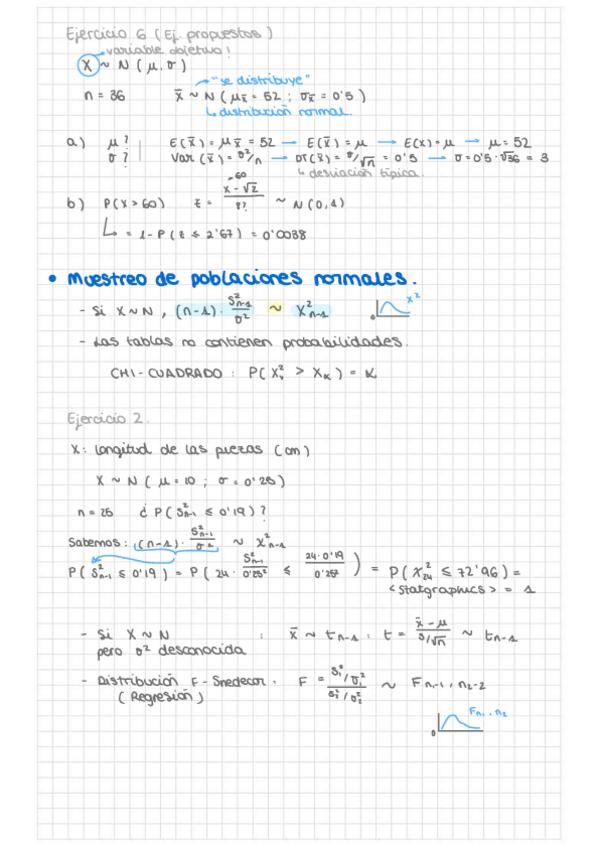 Ejercicio 6 (Ej. propuestos)
variable objetivo!
X ~ N (μ, σ)
"se distribuye"
n = 36 x̄ ~ N (μx̄ = 52 ; σx̄ = 0'5)
distribución normal.
a) μ? E(x̄) = μx̄ = 52 → E(x̄) = μ → E(x) = μ → μ = 52
σ? Var (x̄) = σ²/n → DT(x̄) = σ/√n = 0'5 → σ = 0'5 · √36 = 3
desviación típica.
b) P(X > 60) z = ~ N(0,1)
= 1 - P(z ≤ 2'67) = 0'0038
• Muestreo de poblaciones normales.
- Si X ~ N, (n-1) · S²n-1/σ² ~ X²n-1
X²
0
- Las tablas no contienen probabilidades.
CHI-CUADRADO : P(X²ᵥ > Xα) = α
Ejercicio 2.
X: longitud de las piezas (cm)
X ~ N (μ = 10 ; σ = 0'25)
n = 25 ¿ P(S²n-1 ≤ 0'19)?
Sabemos: (n-1) · S²n-1/σ² ~ X²n-1
P(S²n-1 ≤ 0'19) = P(24 · S²n-1/0'25² ≤ 24·0'19/0'25²) = P(X²24 ≤ 72'96) =
<Statgraphics> = 1
- Si X ~ N : x̄ ~ tn-1 : t = x̄ - μ / s/√n ~ tn-1
pero σ² desconocida
- Distribución F-Snedecor. F = S₁²/σ₁² / S₂²/σ₂² ~ Fn₁-1, n₂-2
(Regresión)
Fn₁, n₂
0